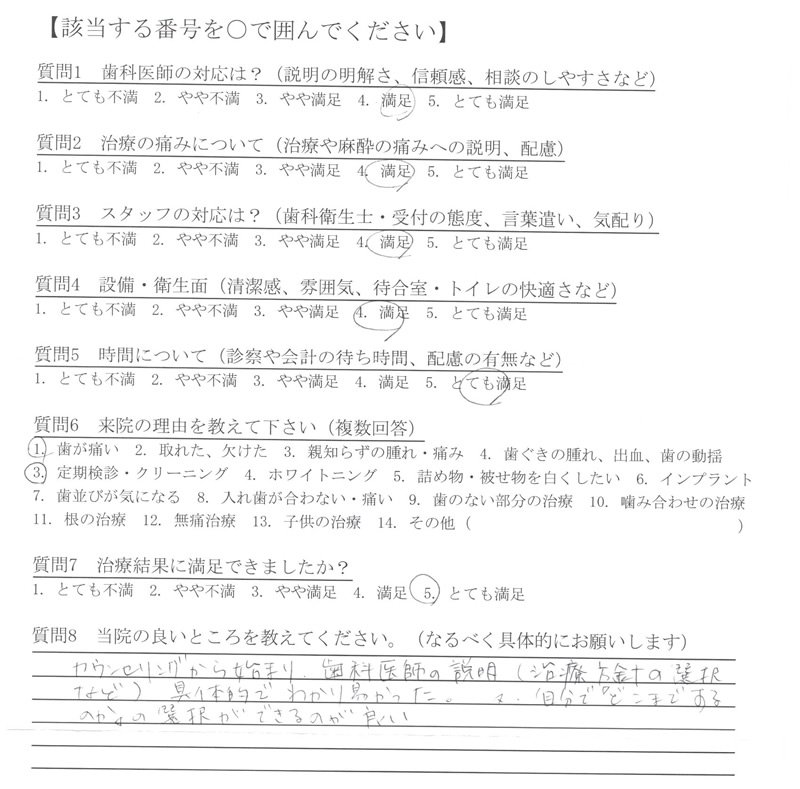 【該当する番号を〇で囲んでください】
質問1 歯科医師の対応は？（説明の明解さ、信頼感、相談のしやすさなど）
1. とても不満 2. やや不満 3. やや満足 4. 満足 5. とても満足
質問2 治療の痛みについて（治療や麻酔の痛みへの説明、配慮）
1. とても不満 2. やや不満 3. やや満足 4. 満足 5. とても満足
質問3 スタッフの対応は？（歯科衛生士・受付の態度、言葉遣い、気配り）
1. とても不満 2. やや不満 3. やや満足 4. 満足 5. とても満足
質問4 設備・衛生面（清潔感、雰囲気、待合室・トイレの快適さなど）
1. とても不満 2. やや不満 3. やや満足 4. 満足 5. とても満足
質問5 時間について（診察や会計の待ち時間、配慮の有無など）
1. とても不満 2. やや不満 3. やや満足 4. 満足 5. とても満足
質問6 来院の理由を教えて下さい（複数回答）
1. 歯が痛い 2. 取れた、欠けた 3. 親知らずの腫れ・痛み 4. 歯ぐきの腫れ、出血、歯の動揺
3. 定期検診・クリーニング 4. ホワイトニング 5. 詰め物・被せ物を白くしたい 6. インプラント
7. 歯並びが気になる 8. 入れ歯が合わない・痛い 9. 歯のない部分の治療 10. 噛み合わせの治療
11. 根の治療 12. 無痛治療 13. 子供の治療 14. その他（ ）
質問7 治療結果に満足できましたか？
1. とても不満 2. やや不満 3. やや満足 4. 満足 5. とても満足
質問8 当院の良いところを教えてください。（なるべく具体的にお願いします）
カウンセリングから始まり、歯科医師の説明（治療方針の選択
など）具体的でわかり易かった。 又、自分で"どこまでする
のか"の選択ができるのが良い